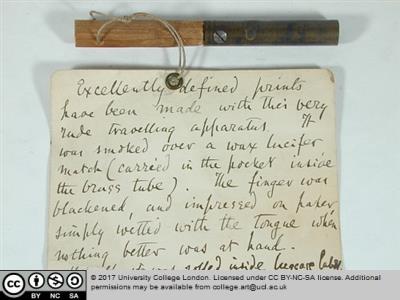 Excellently defined prints
have been made with this very
rude travelling apparatus. It
was smoked over a wax lucifer
match (carried in the pocket inside
the brass tube). The finger was
blackened, and impressed on paper
simply wetted with the tongue when
nothing better was at hand.
was rolled inside
© 2017 University College London. Licensed under CC BY-NC-SA license. Additional
permissions may be available from college.art@ud.ac.uk
cc
BY NC SA